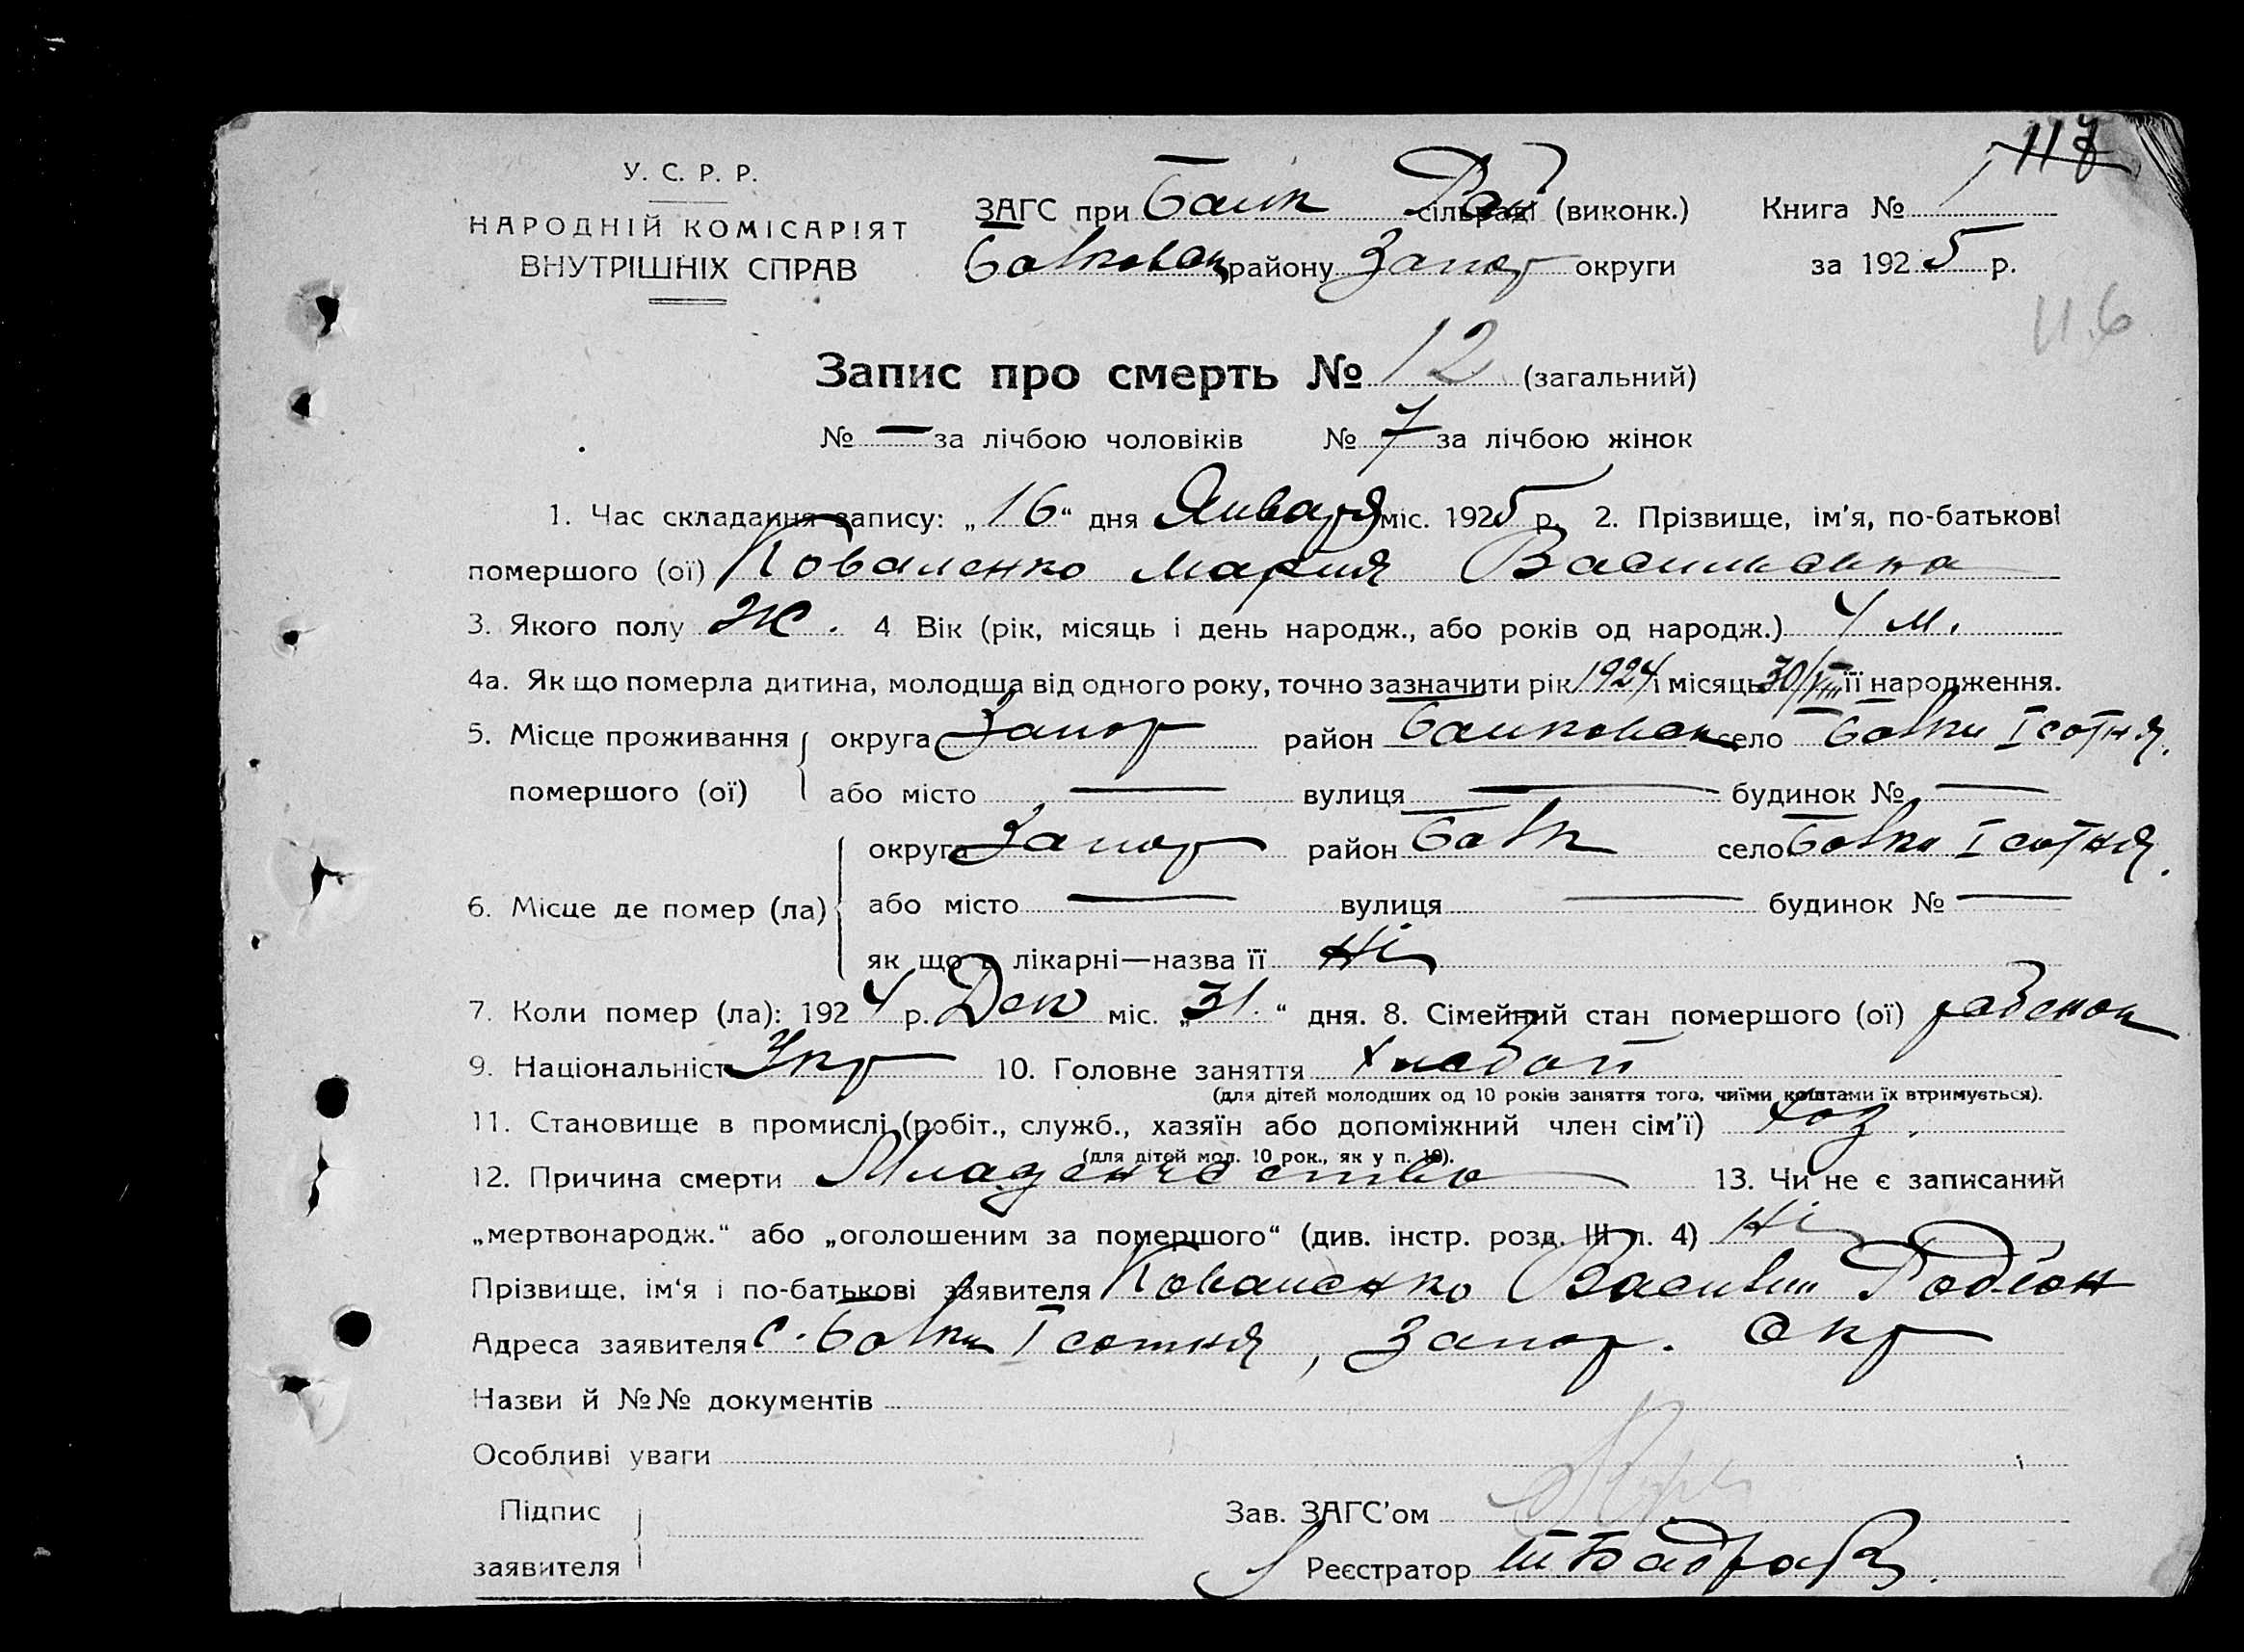 117
У. С. Р. Р.
НАРОДНІЙ КОМІСАРІЯТ
ВНУТРІШНІХ СПРАВ
ЗАГС при Балк Рай сільраді (виконк.) Книга № 1
Балковск району Запор округи за 1925 р.
116
Запис про смерть № 12 (загальний)
№ — за лічбою чоловіків № 7 за лічбою жінок
1. Час складання запису: „16“ дня Января міс. 1925 р. 2. Прізвище, ім'я, по-батькові
помершого (ої) Коваленко Мария Васильевна
3. Якого полу Ж. 4 Вік (рік, місяць і день народж., або років од народж.) 4 м.
4а. Як що померла дитина, молодша від одного року, точно зазначити рік 1924 і місяць 30/VIII її народження.
5. Місце проживання помершого (ої) округа Запор район Балковск село Балки I сотня.
або місто — вулиця — будинок № —
6. Місце де помер (ла) округа Запор район Балк село Балки I сотня.
або місто — вулиця — будинок № —
як що в лікарні—назва її Ні
7. Коли помер (ла): 1924 р. Дек міс. „31.“ дня. 8. Сімейний стан помершого (ої) рабенок
9. Національність Укр 10. Головне заняття хлебоп
(для дітей молодших од 10 років заняття того, чиїми коштами їх втримується).
11. Становище в промислі (робіт., служб., хазяїн або допоміжний член сім'ї) хоз.
(для дітей мол. 10 рок., як у п. 10).
12. Причина смерти Младенчество 13. Чи не є записаний
„мертвонародж.“ або „оголошеним за помершого“ (див. інстр. розд. III п. 4) Ні
Прізвище, ім'я і по-батькові заявителя Коваленко Васили Родіон
Адреса заявителя с. Балки I сотня, Запор. Окр
Назви й №№ документів
Особливі уваги
Підпис заявителя
Зав. ЗАГС'ом
Реєстратор